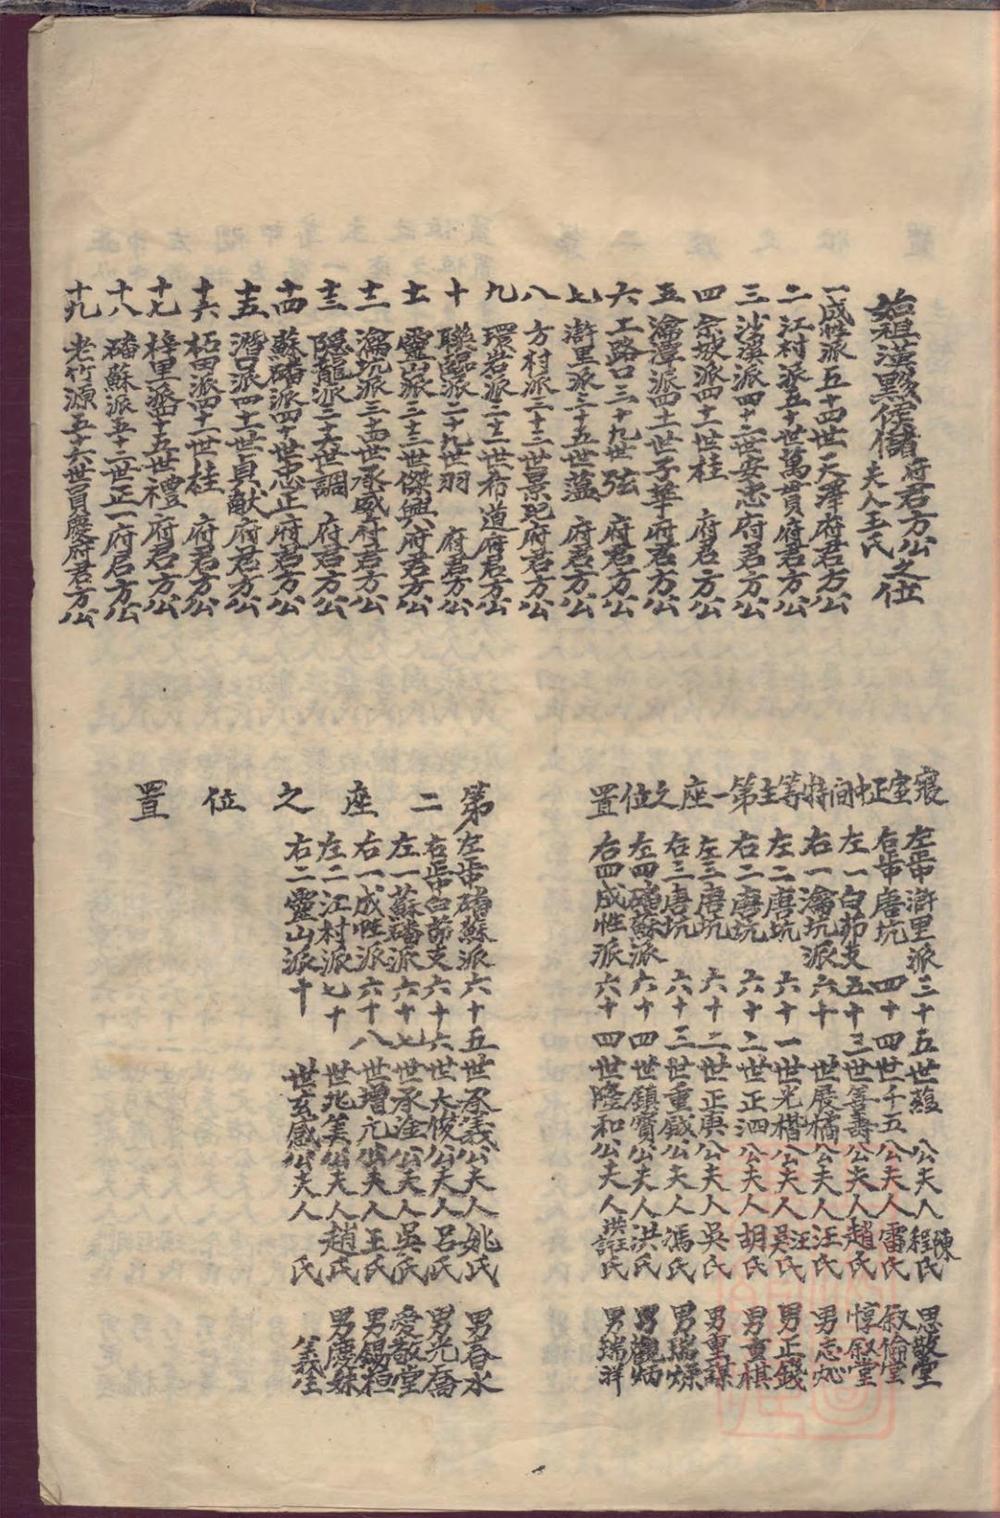 始祖漢黟侯儲府君方公之位
夫人王氏
一成性派五十四世天澤府君方公
二江村派五十世萬貫府君方公
三沙溪派四十二世安忠府君方公
四佘坡派四十二世桂府君方公
五瀹潭派四十一世子華府君方公
六工路口三十九世弦府君方公
七滸里派三十五世蕰府君方公
八方村派三十三世景玘府君方公
九環岩派三十二世希道府君方公
十聯墅派二十九世羽府君方公
十一靈山派三十三世傑興府君方公
十二瀹坑派三十四世承威府君方公
十三隐龍派三十六世調府君方公
十四蘇磻派四十世忠正府君方公
十五潛口派四十一世貞猷府君方公
十六柘田派四十一世桂府君方公
十七梓里派四十五世禮府君方公
十八磻蘇派五十二世正一府君方公
十九老竹源五十六世員慶府君方公
寢室正中間特等主第一座之位置
左正中滸里派三十五世蕰公夫人程陳氏思敬堂
右正中唐坑四十四世千五公夫人雷氏叙倫堂
左一白茆支五十三世善壽公夫人趙氏惇叙堂
右一瀹坑派六十世展橘公夫人汪氏男志
左二唐坑六十一世光楷公夫人吴汪氏男正錢
右二唐坑六十二世正泗公夫人胡氏男重棋
左三唐坑六十二世正庚公夫人吳氏男重謀
右三唐坑六十三世重戧公夫人馮氏男瑞燥
左四磻蘇派六十四世鎮寶公夫人洪氏男觀炳
右四成性派六十四世隆和公夫人洪汪氏男瑞祥
第二座之位置
左正中磻蘇派六十五世承義公夫人姚氏男春水
右正中白茆支六十六世大悛公夫人呂氏男光喬
左一蘇磻派六十七世承淦公夫人吳氏愛敬堂
右一成性派六十八世增元公夫人王氏男錫桓
左二江村派七十世兆美公夫人趙氏男慶妹
右二靈山派十世玄感公夫人氏義全